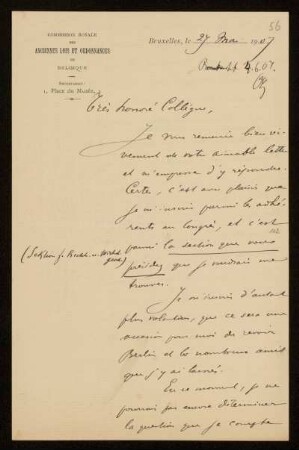 56
COMMISSION ROYALE
DES
ANCIENNES LOIS ET ORDONNANCES
DE
BELGIQUE
Secrétariat:
1, Place du Musée, 1
Bruxelles, le 27 Mai 1907
6.07.
Très honoré Collègue,
Je vous remercie bien vi-
vement de votre aimable lettre
et m'empresse d'y répondre.
Certes, c'est avec plaisir que
je m'inscris parmi les adhé-
rents au Congrès, et c'est
parmi la section que vous
présidez que je voudrais me
trouver.
Je m'inscris d'autant
plus volontiers, que ce sera une
occasion pour moi de revoir
Berlin et les nombreux amis
que j'y ai laissés.
En ce moment, je ne
pourrais pas encore déterminer
la question que je compte